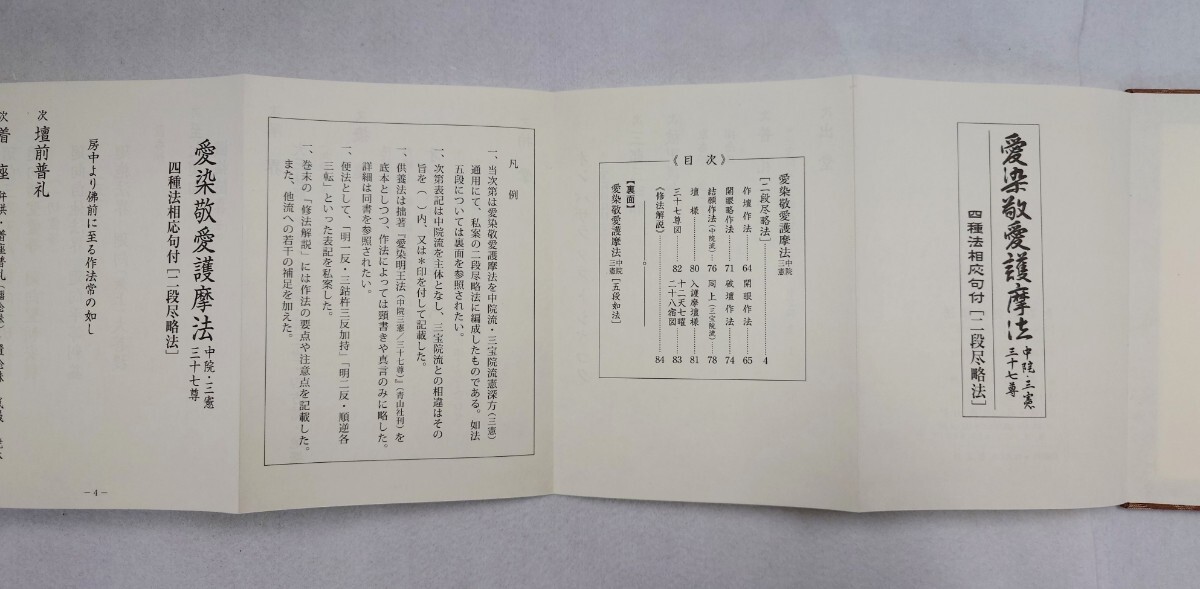 愛染敬愛護摩法 中院・三憲 三十七尊
四種法相応句付[二段尽略法]
《目次》
愛染敬愛護摩法 中院 三憲
[二段尽略法]………4
作壇作法………64
閉眼作法………65
開眼略作法………71
破壇作法………74
結願作法(中院流)…76
同上(三宝院流)…78
壇様………80
入護摩壇様………81
三十七尊図………82
十二天七曜
二十八宿図………83
《修法解説》………84
【裏面】
愛染敬愛護摩法 中院 三憲 [五段如法]
凡例
一、当次第は愛染敬愛護摩法を中院流・三宝院流憲深方(三憲)
通用にて、私案の二段尽略法に編成したものである。如法
五段については裏面を参照されたい。
一、次第表記は中院流を主体となし、三宝院流との相違はその
旨を( )内、又は*印を付して記載した。
一、供養法は拙著『愛染明王法(中院三憲/三十七尊)』(青山社刊)を
底本としつつ、作法によっては頭書きや真言のみに略した。
詳細は同書を参照されたい。
一、便法として、「明一反・三鈷杵三反加持」「明二反・順逆各
三転」といった表記を私案した。
一、巻末の「修法解説」には作法の要点や注意点を記載した。
また、他流への若干の補足を加えた。
愛染敬愛護摩法 中院・三憲 三十七尊
四種法相応句付[二段尽略法]
房中より佛前に至る作法常の如し
次 壇前普礼
次 着座
－4－